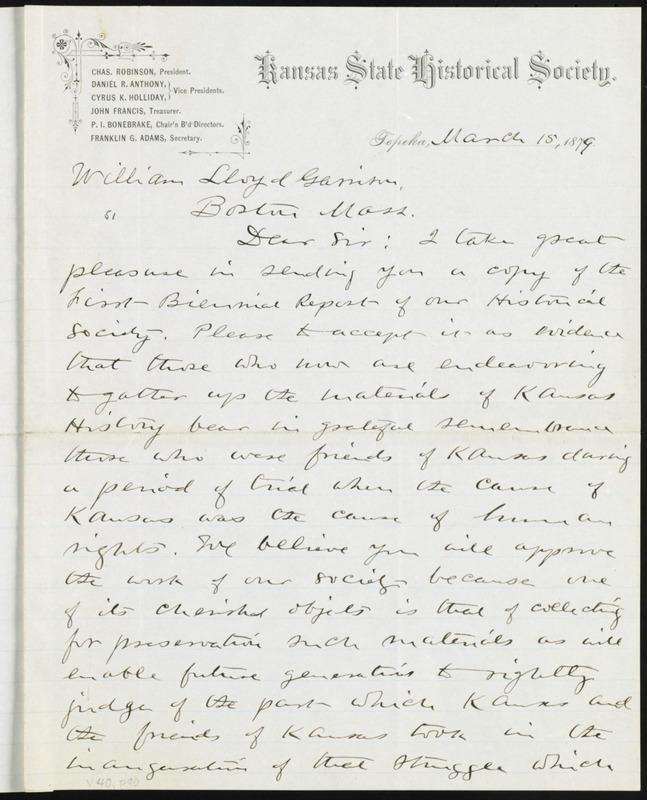 Kansas State Historical Society.
CHAS. ROBINSON, President.
DANIEL R. ANTHONY,
CYRUS K. HOLLIDAY, } Vice Presidents.
JOHN FRANCIS, Treasurer.
P. I. BONEBRAKE, Chair'n B'd Directors.
FRANKLIN G. ADAMS, Secretary.
Topeka, March 15, 1879.
William Lloyd Garrison,
Boston Mass.
Dear Sir: I take great
pleasure in sending you a copy of the
First Biennial Report of our Historical
Society. Please to accept it as evidence
that those who now are endeavoring
to gather up the materials of Kansas
History bear in grateful remembrance
those who were friends of Kansas during
a period of trial when the cause of
Kansas was the cause of human
rights. We believe you will approve
the work of our Society because one
of its cherished objects is that of collecting
for preservation such materials as will
enable future generations to rightly
judge of the part which Kansas and
the friends of Kansas took in the
inauguration of that struggle which
v.40, p.90